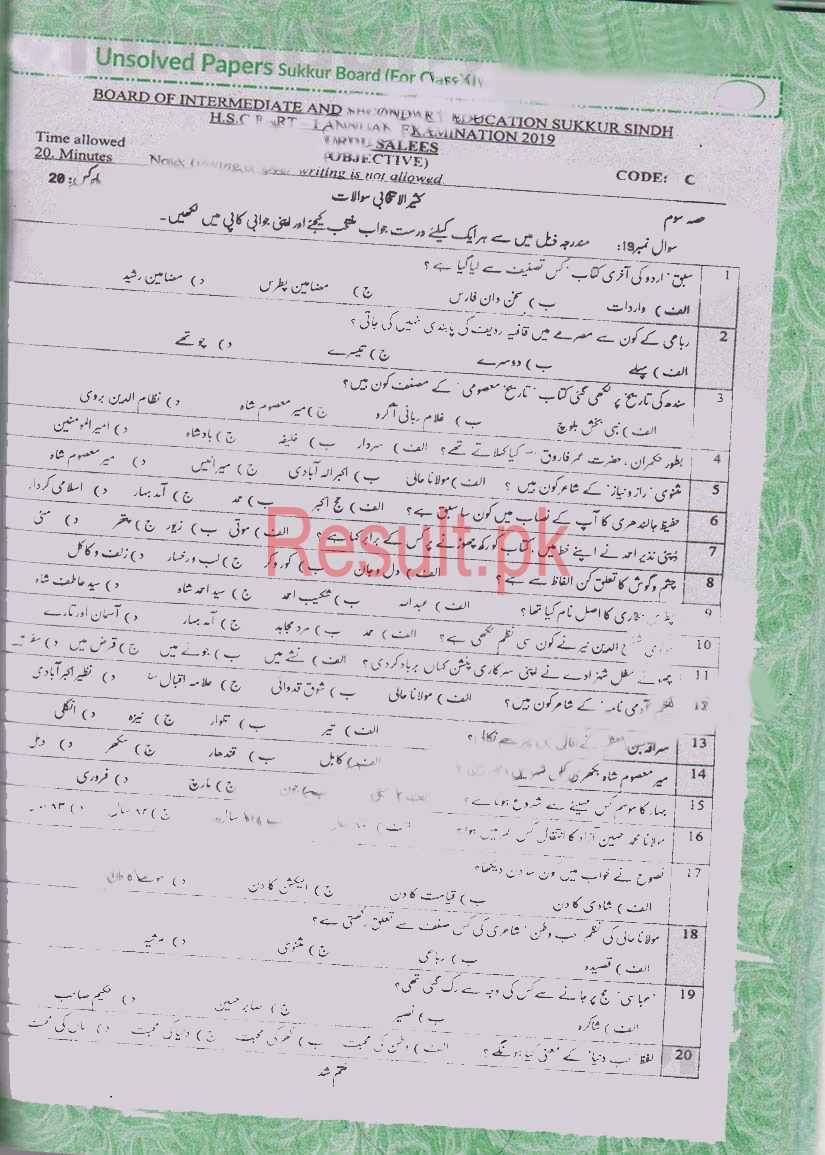 Unsolved Papers Sukkur Board (For Class XI)
BOARD OF INTERMEDIATE AND SECONDARY EDUCATION SUKKUR SINDH
H.S.C PART EXAMINATION 2019
Time allowed SALEES
20. Minutes (OBJECTIVE)
writing is not allowed. CODE: C
20:
کثیر الانتخابی سوالات
حصہ سوم
سوال نمبر19: مندرجہ ذیل میں سے ہر ایک کیلئے درست جواب منتخب کیجئے اور اپنی جوابی کاپی میں لکھیں۔
1 سبق "اردو کی آخری کتاب" کس تصنیف سے لیا گیا ہے؟
الف) واردات ب) سخن دان فارس ج) مضامین پطرس د) مضامین رشید
2 رباعی کے کون سے مصرعے میں قافیہ ردیف کی پابندی نہیں کی جاتی؟
الف) پہلے ب) دوسرے ج) تیسرے د) چوتھے
3 سندھ کی تاریخ پر لکھی گئی کتاب "تاریخ معصومی" کے مصنف کون ہیں؟
الف) نبی بخش بلوچ ب) غلام ربانی آگرو ج) میر معصوم شاہ د) نظام الدین ہروی
4 بطور حکمران، حضرت عمر فاروق کیا کہلاتے تھے؟ الف) سردار ب) خلیفہ ج) بادشاہ د) امیر المومنین
5 مثنوی "راز و نیاز" کے شاعر کون ہیں؟ الف) مولانا حالی ب) اکبر الہ آبادی ج) میر انیس د) میر معصوم شاہ
6 حفیظ جالندھری کا آپ کے نصاب میں کون سا سبق ہے؟ الف) حج اکبر ب) حمد ج) آمد بہار د) اسلامی کردار
7 ڈپٹی نذیر احمد نے اپنے خط میں، کتاب کو رکھ چھوڑنے پر کس کے برابر کہا ہے؟ الف) موتی ب) زیور ج) پتھر د) مٹی
8 چشم و گوش کا تعلق کن الفاظ سے ہے؟ الف) دل و جان ب) کور و کر ج) لب و رخسار د) زلف و کاکل
9 پطرس بخاری کا اصل نام کیا تھا؟ الف) عبداللہ ب) شکیب احمد ج) سید احمد شاہ د) سید عاطف شاہ
10 الدین نیر نے کون سی نظم لکھی ہے؟ الف) حمد ب) مرد مجاہد ج) آمد بہار د) آسمان اور تارے
11 مغل شہزادے نے اپنی سرکاری پنشن کہاں برباد کردی؟ الف) نشے میں ب) جوئے میں ج) قرض میں د)
12 نظم "آدمی نامہ" کے شاعر کون ہیں؟ الف) مولانا حالی ب) شوق قدوائی ج) علامہ اقبال د) نظیر اکبر آبادی
13 سراقہ بن الف) تیر ب) تلوار ج) نیزہ د) انگلی
14 میر معصوم شاہ بکھری الف) کابل ب) قندھار ج) سکھر د) دہلی
15 بہار کا موسم کس مہینے سے شروع ہوتا ہے؟ ب) جون ج) مارچ د) فروری
16 مولانا محمد حسین آزاد کا انتقال کس عمر میں ہوا؟
17 نصوح نے خواب میں کون سا دن دیکھا؟
الف) شادی کا دن ب) قیامت کا دن ج) الیکشن کا دن د)
18 مولانا حالی کی نظم "حب وطن" شاعری کی کس صنف سے تعلق رکھتی ہے؟
الف) قصیدہ ب) رباعی ج) مثنوی د) مرثیہ
19 "عباسی" حج پر جانے سے کس کی وجہ سے رک گئی تھی؟
الف) شاکرہ ب) نصیر ج) صابر حسین د) حکیم صاحب
20 لفظ "حب دنیا" کے معنی کیا ہونگے؟ الف) وطن کی محبت ب) گھر کی محبت ج) دنیا کی محبت د) ماں کی محبت
ختم شد
Result.pk